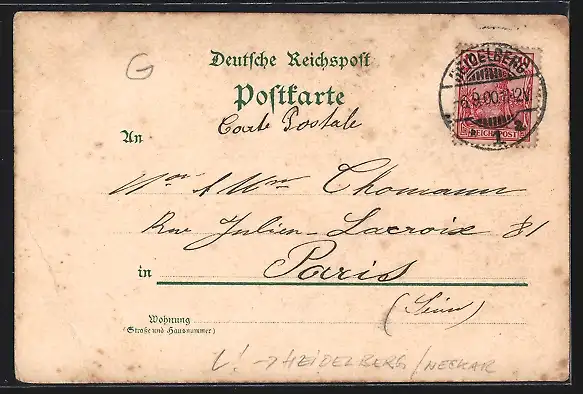 G
Deutsche Reichspost
Postkarte
Carte Postale
An
HEIDELBERG
6.9.00.11-12V.
1
REICHSPOST
Thomann
Rue Julien-Lacroix 81
in Paris
(Seine)
Wohnung
(Straße und Hausnummer)
→ HEIDELBERG/NECKAR